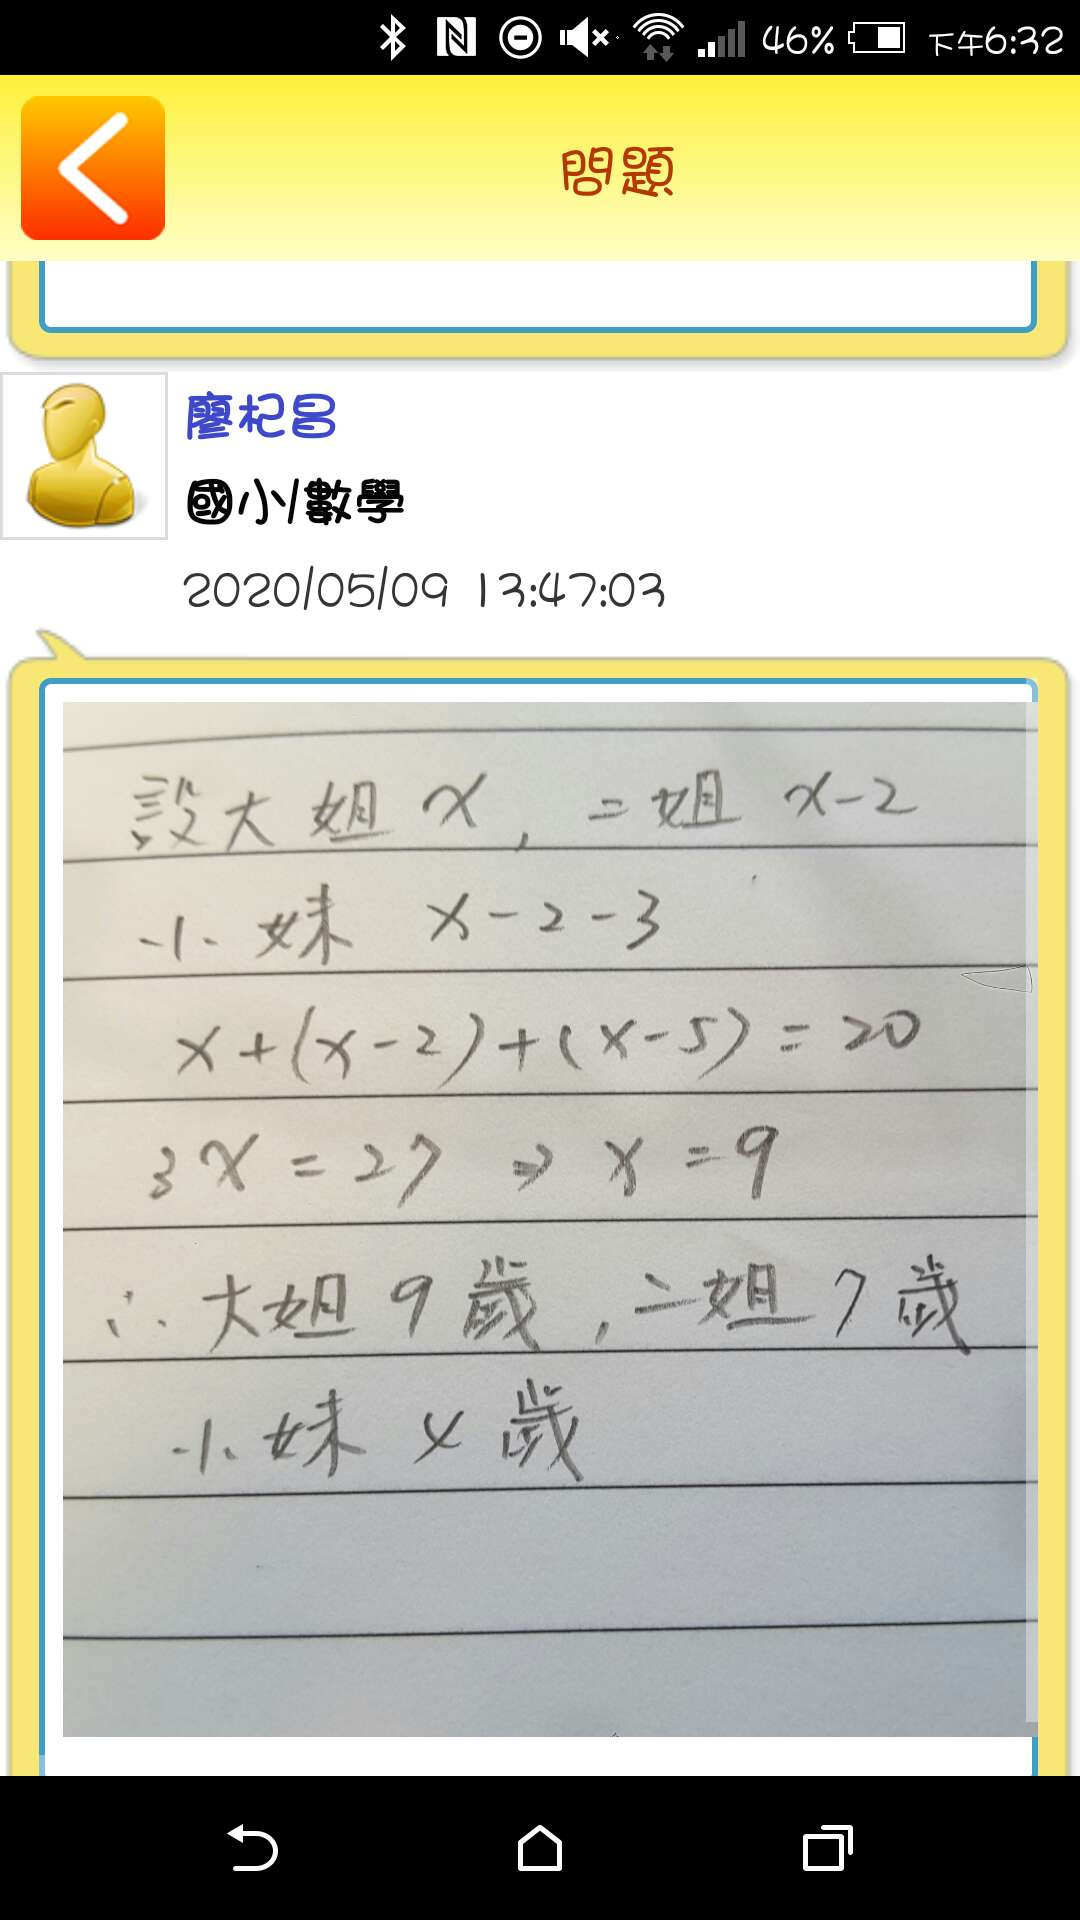 46% 下午6:32
問題
廖杞昌
國小/數學
2020/05/09 13:47:03
設大姐 x, 二姐 x-2
小妹 x-2-3
x+(x-2)+(x-5)=20
3x=27 ⇒ x=9
∴大姐9歲,二姐7歲
小妹4歲